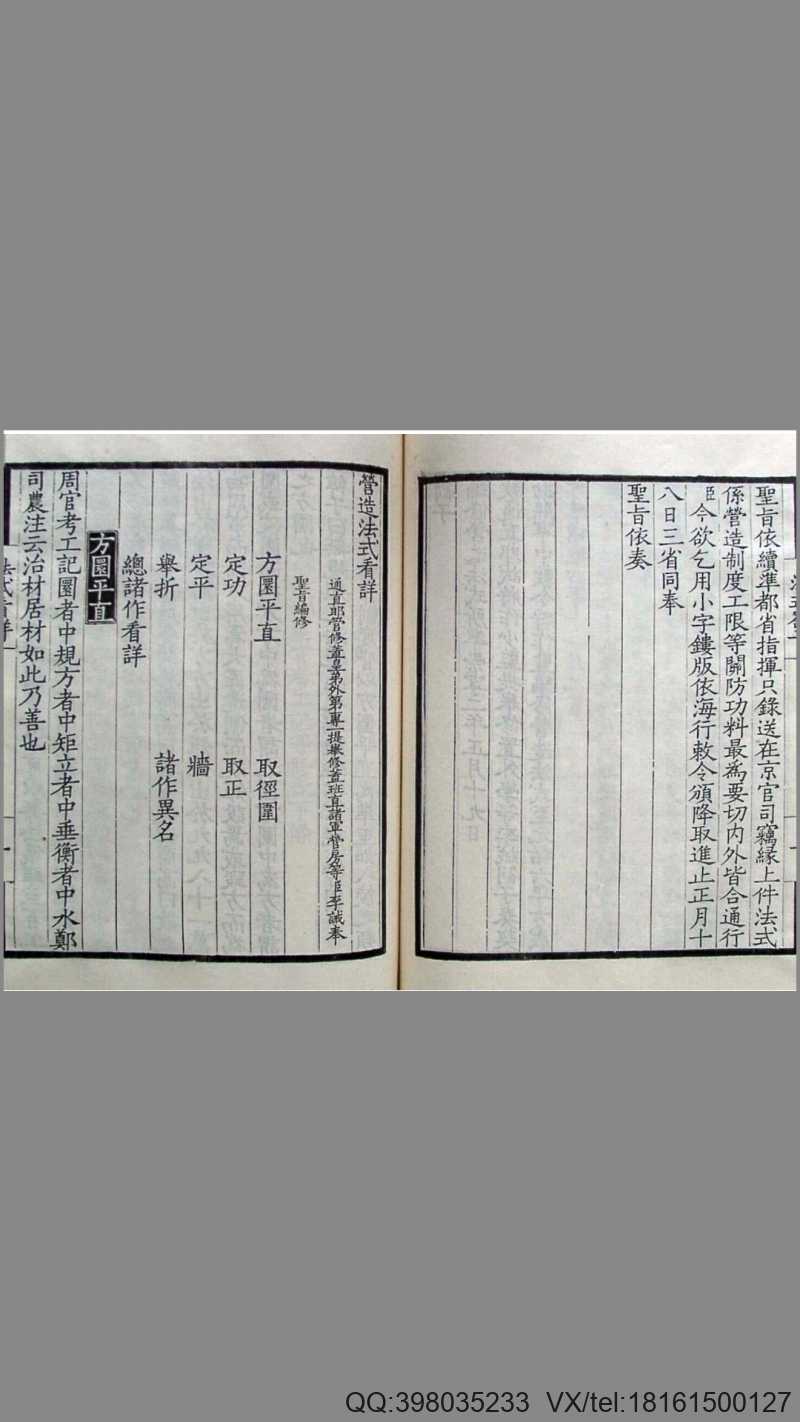 聖旨依續準都省指揮只錄送在京官司竊緣上件法式
係營造制度工限等關防功料最爲要切內外皆合通行
臣今欲乞用小字鏤版依海行敕令頒降取進止正月十
八日三省同奉
聖旨依奏
營造法式看詳
通直郎管修蓋皇弟外第專一提舉修蓋班直諸軍營房等臣李誡奉
聖旨編修
方圜平直 取徑圍
定功 取正
定平 牆
舉折 諸作異名
總諸作看詳
方圜平直
周官考工記圜者中規方者中矩立者中垂衡者中水鄭
司農注云治材居材如此乃善也
QQ:398035233 VX/tel:18161500127